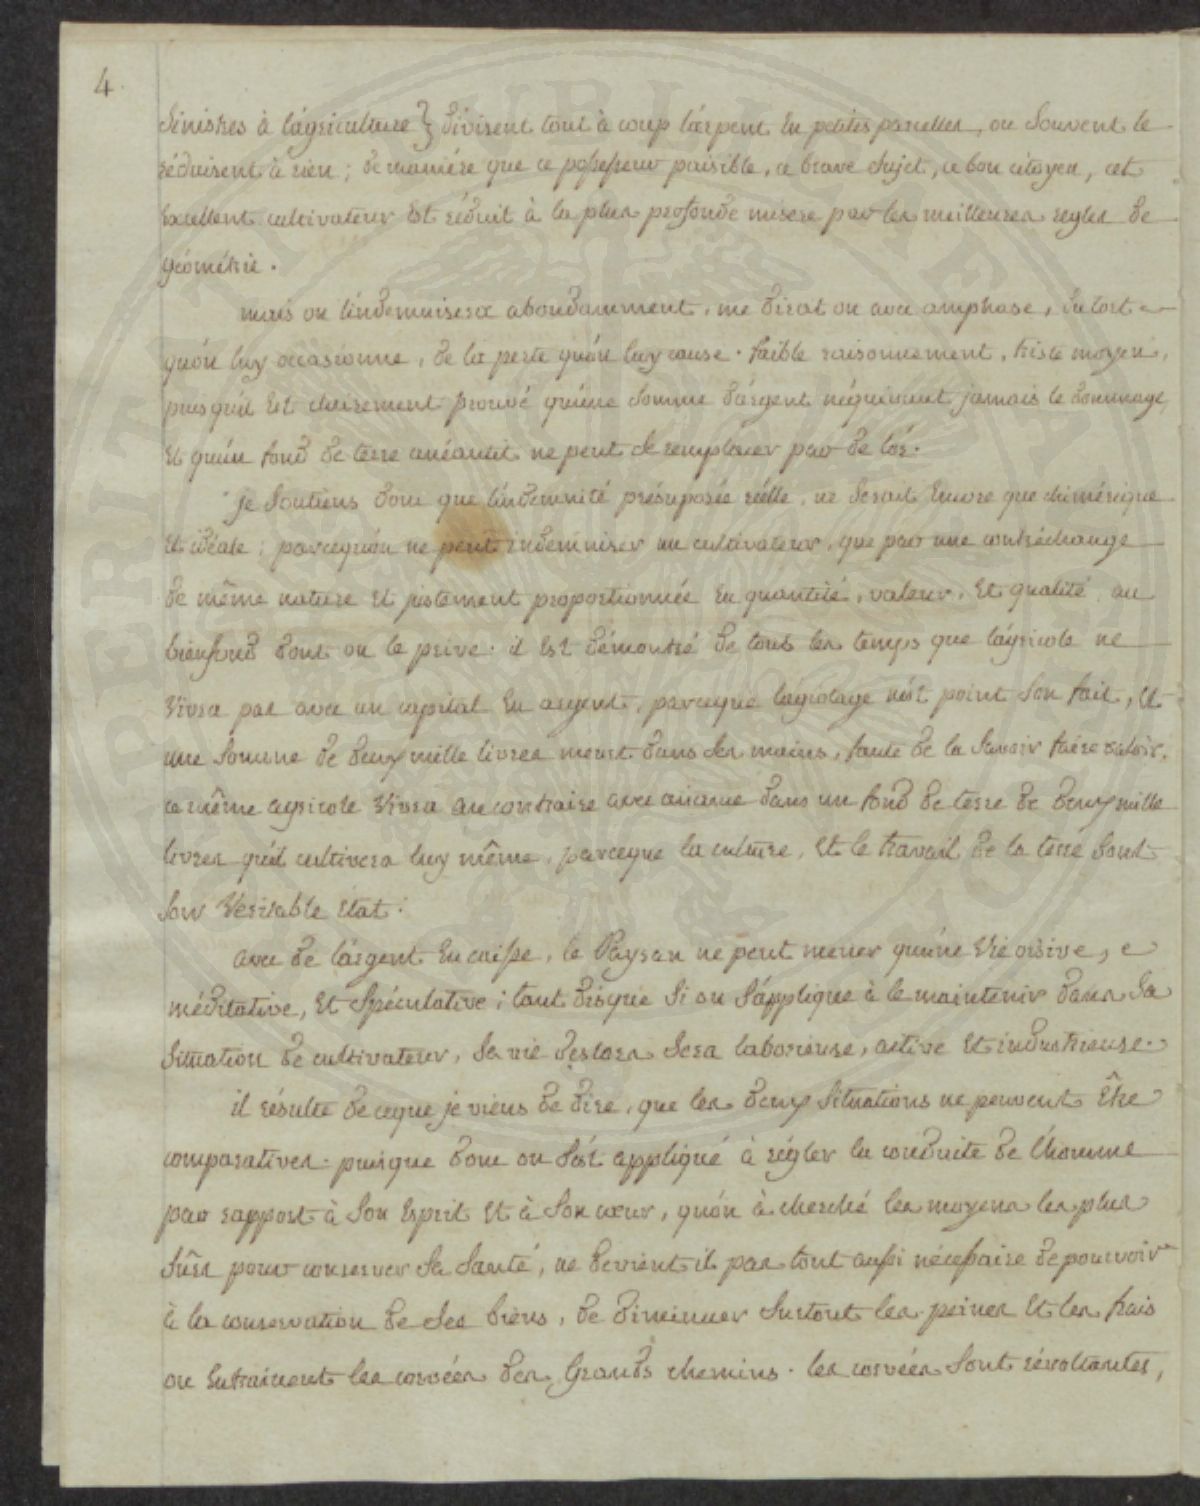 4.
Sinistres à l'agriculture } divisent tout à coup l'arpent en petites parcelles, ou souvent le
réduisent à rien ; de maniére que ce possesseur paisible, ce brave sujet, ce bon citoyen, cet
excellent cultivateur est réduit à la plus profonde misere par les meilleures regles de
géométrie.
mais on l'indemnisera abondamment, me dirat on avec amphase, du tort
qu'on luy occasionne, de la perte qu'on luy cause. faible raisonnement, triste moyen,
puisqu'il est clairement prouvé qu'une somme d'argent n'équivaut jamais le dommage
et qu'un fond de terre anéantit ne peut se remplacer par de l'or.
je soutiens donc que l'indemnité présuposée réelle, ne serait encore que chimérique
et idéale ; parcequ'on ne peut indemniser un cultivateur, que par une contréchange
de même nature et justement proportionnée en quantité, valeur, et qualité, au
bienfond dont on le prive. il est démontré de tous les temps que l'agricole ne
vivra pas avec un capital en argent, parceque l'agiotage n'est point son fait, et
une somme de deux mille livres meurt dans ses mains, faute de la savoir faire valoir.
ce même agricole vivra au contraire avec aisance dans un fond de terre de deux mille
livres qu'il cultivera luy même, parceque la culture, et le travail de la terre sont
son véritable état.
avec de l'argent en caisse, le Paysan ne peut mener qu'une vie oisive,
méditative, et spéculative ; tant disque si on s'applique à le maintenir dans sa
situation de cultivateur, sa vie deslors sera laborieuse, active et industrieuse.
il résulte de ceque je viens de dire, que les deux situations ne peuvent être
comparatives. puisque donc on s'est appliqué à régler la conduite de l'homme
par rapport à son esprit et à son cœur, qu'on à cherché les moyens les plus
sûrs pour conserver sa santé, ne devient il pas tout aussi nécessaire de pourvoir
à la conservation de ses biens, de diminuer surtout les peines et les frais
ou entrainent les corvées des Grands chemins. les corvées sont révoltantes,